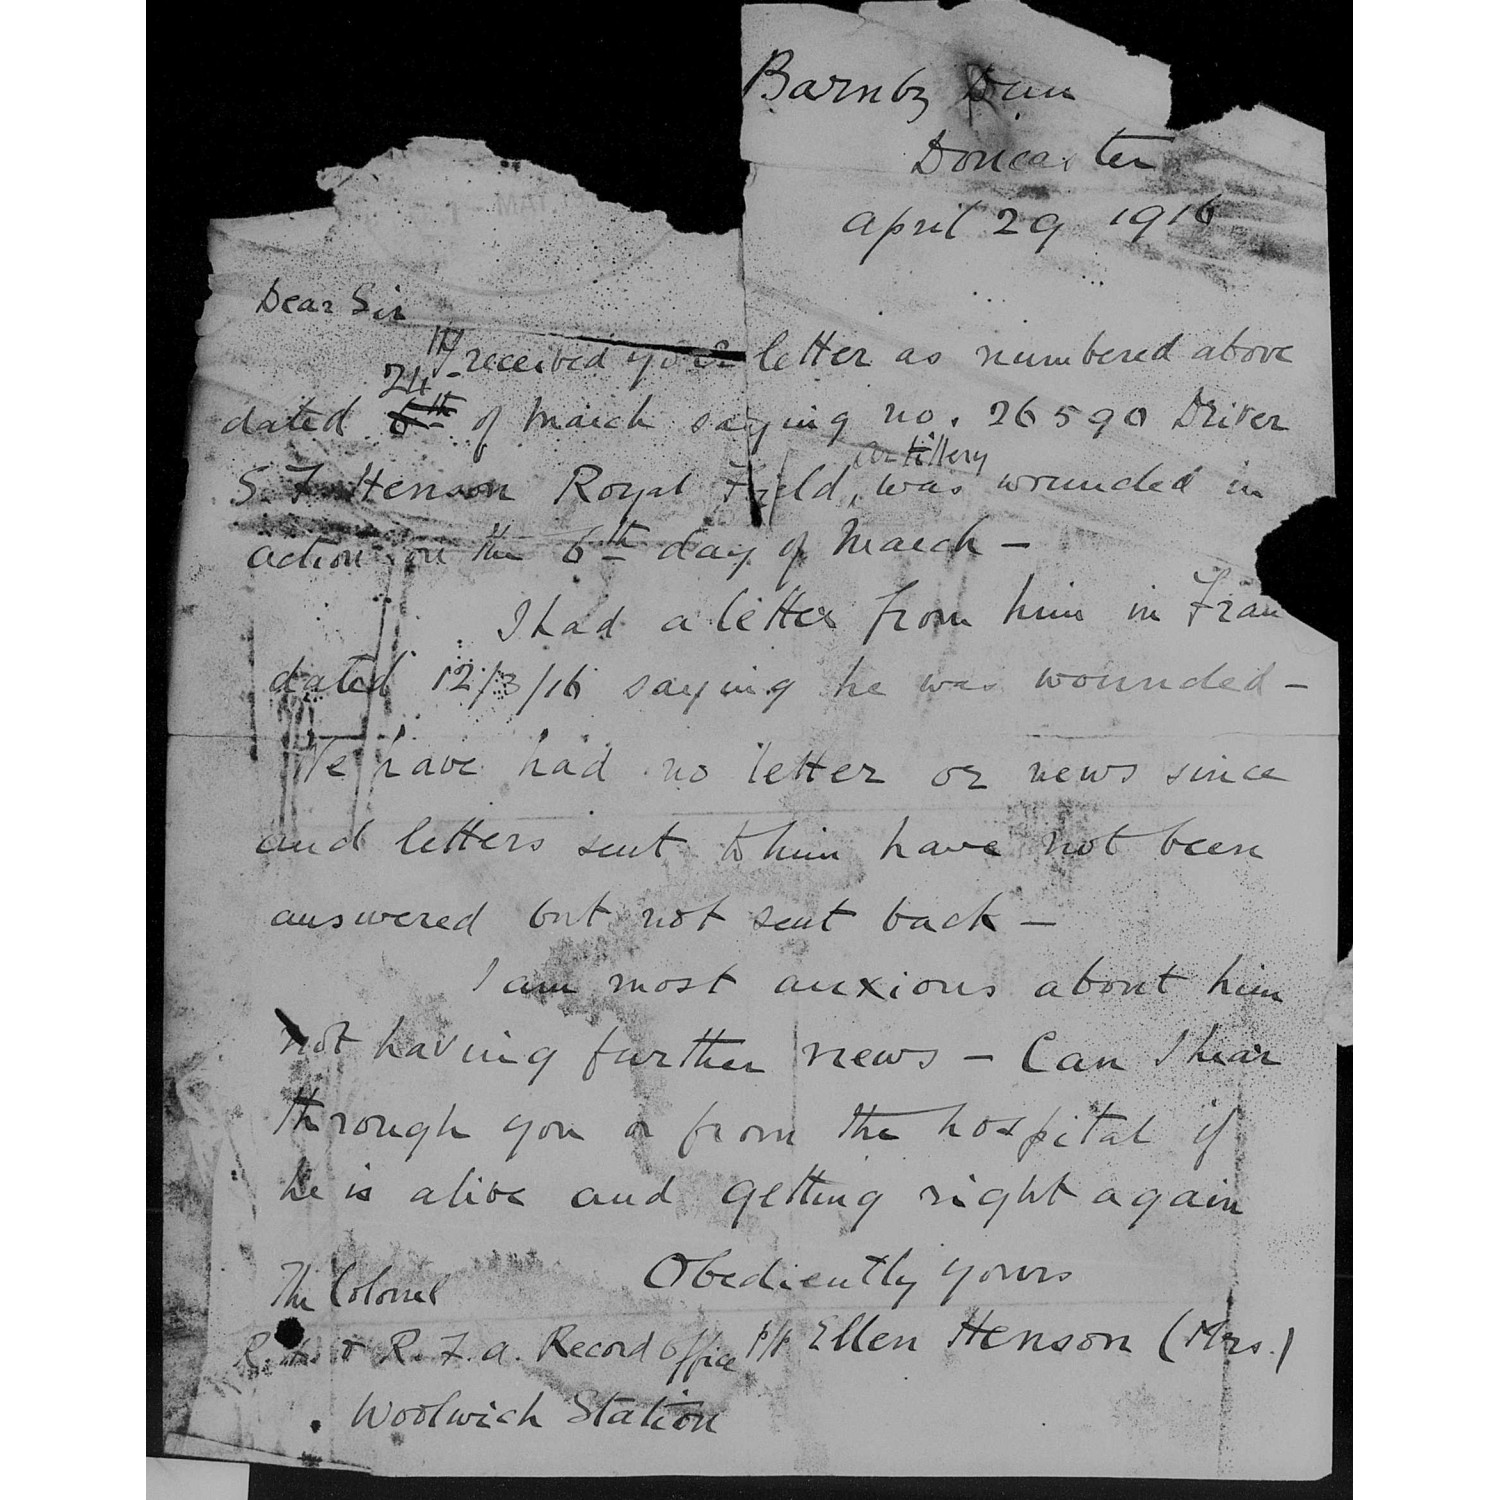 Barnby Dun
Doncaster
april 29 1916
Dear Sir
I received your letter as numbered above
dated 24th of March saying no. 26590 Driver
S. F. Henson Royal Field artillery was wounded in
action on the 6th day of March –
I had a letter from him in Fran
dated 12/3/16 saying he was wounded –
We have had no letter or news since
and letters sent to him have not been
answered but not sent back –
I am most anxious about him
not having further news – Can I hear
through you or from the hospital if
he is alive and getting right again
Obediently yours
The Colonel
p/p Ellen Henson (Mrs.)
& R. F. a. Record Office
Woolwich Station